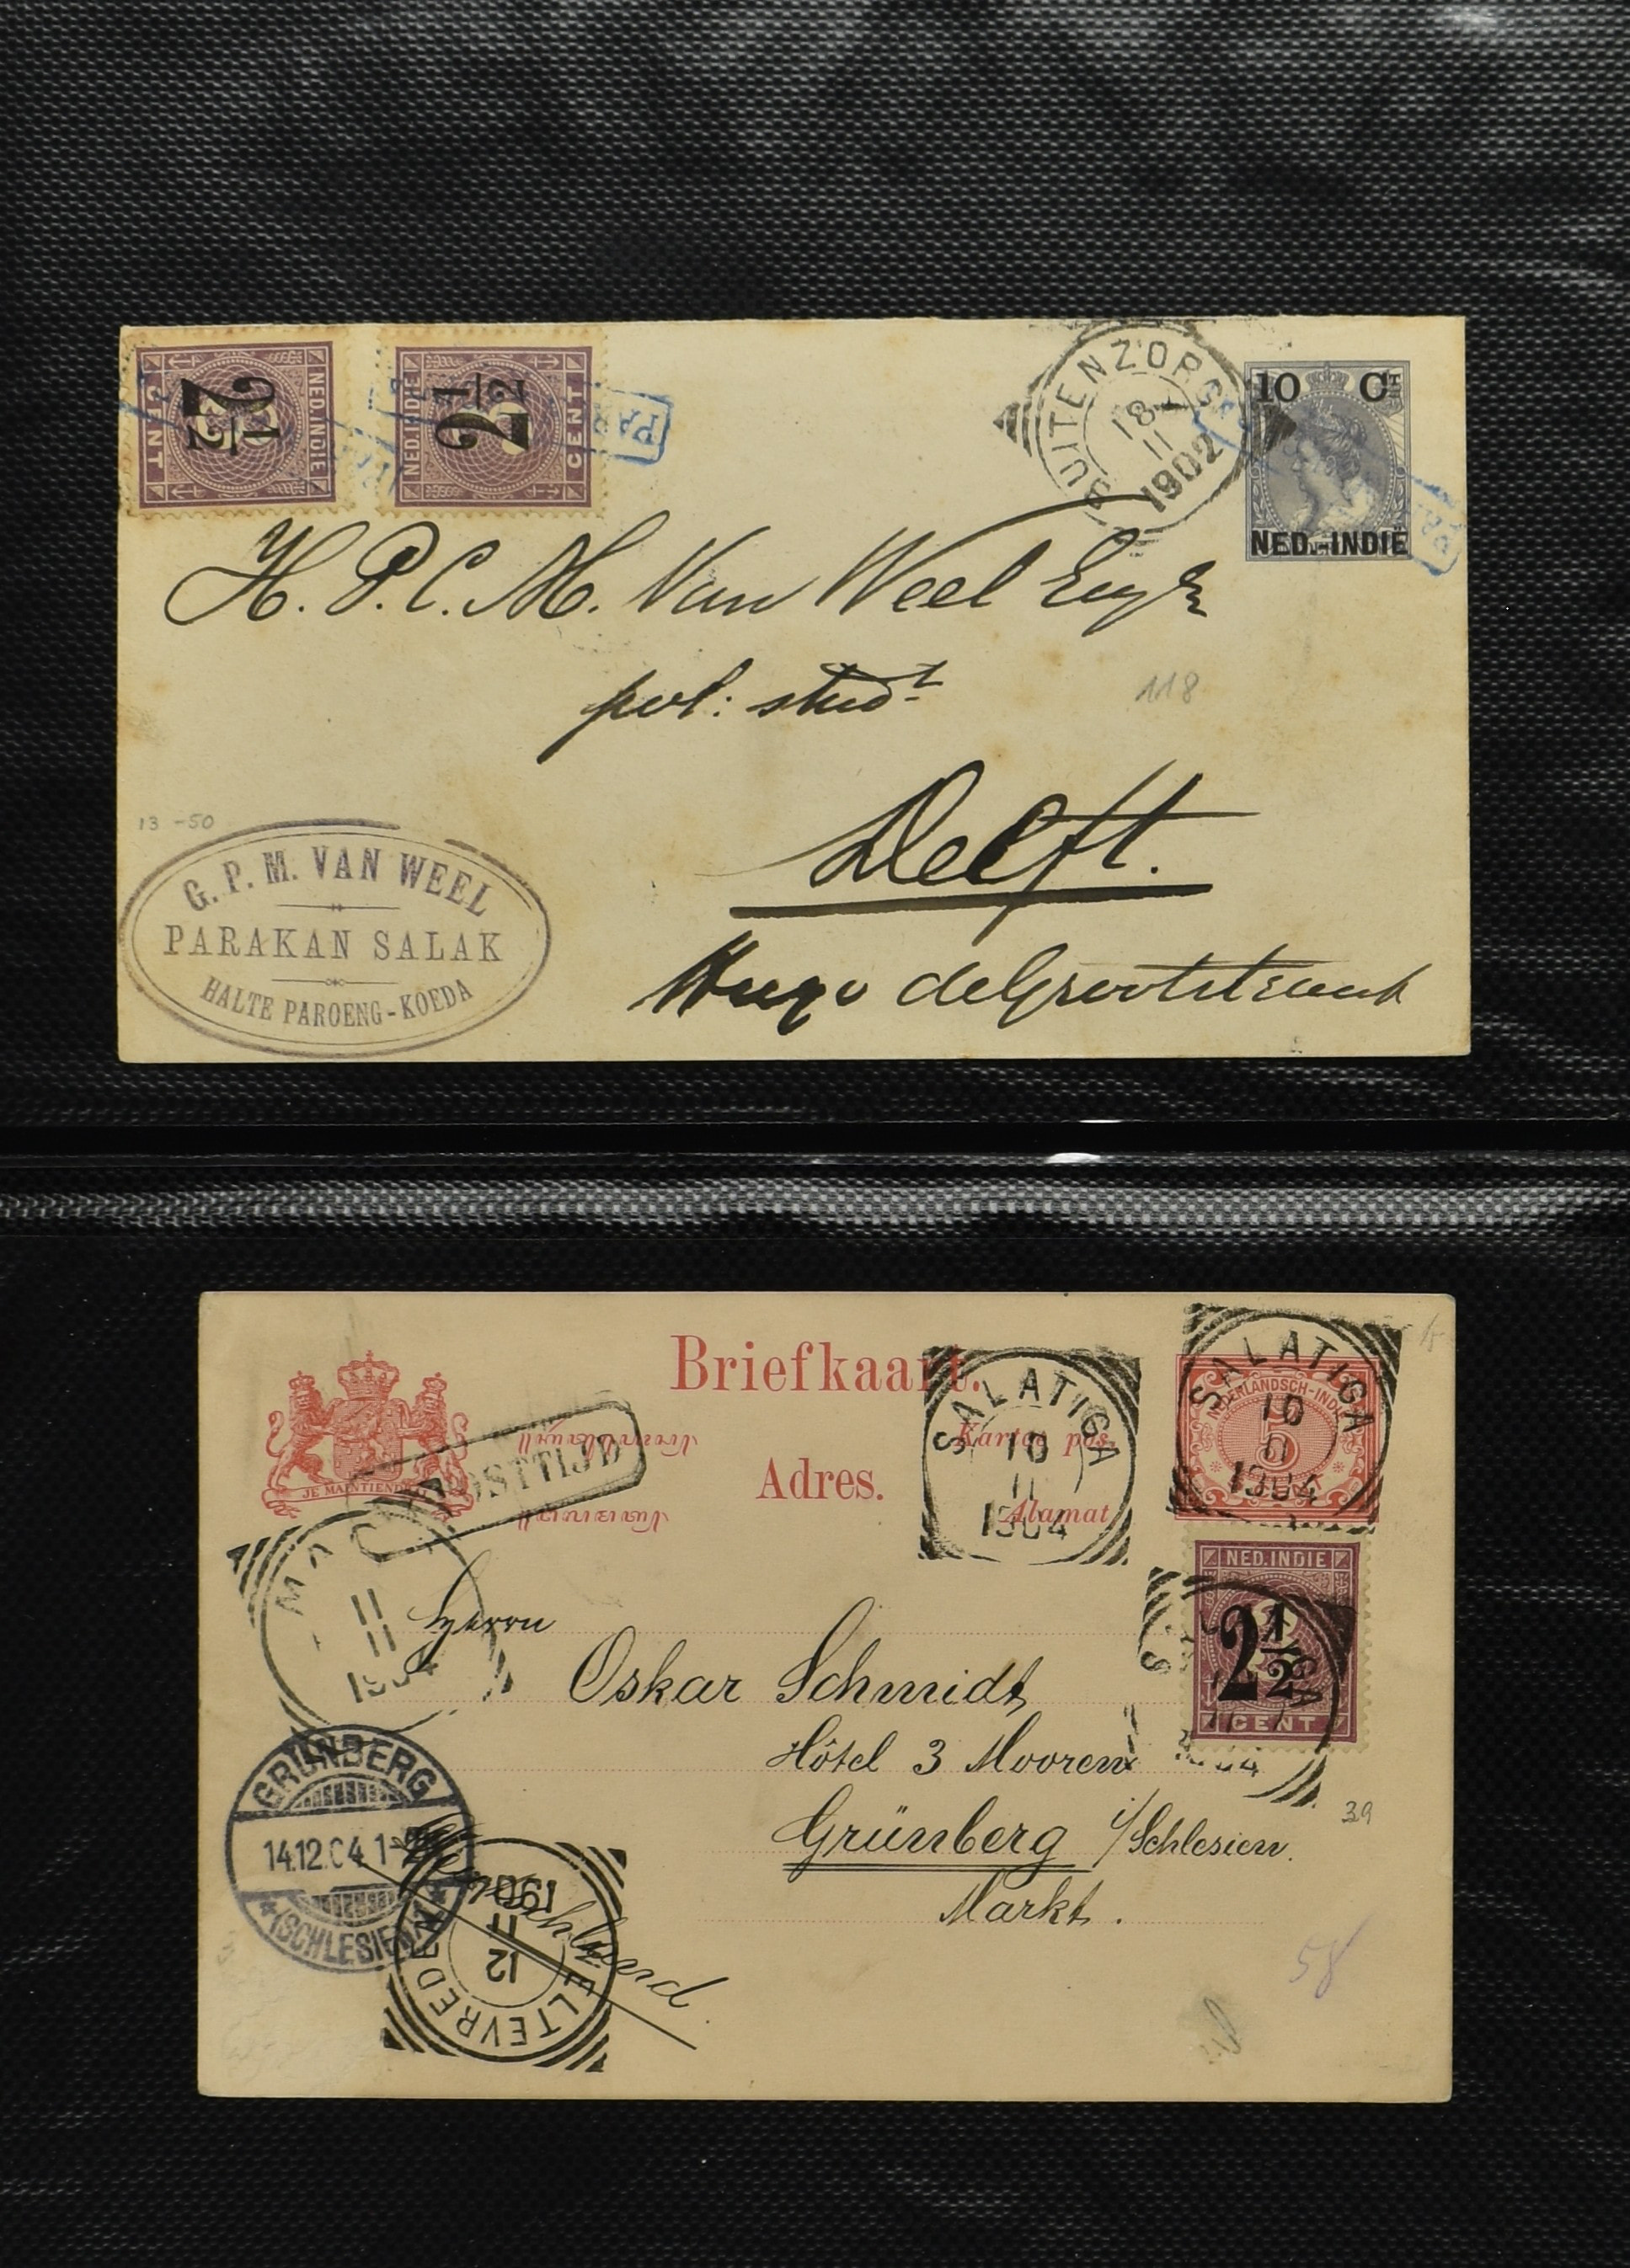 2½
CENT
NED. INDIE
NED. INDIE
2½
CENT
PAR
BUITENZORG
18
11
1902
10 CT
NED.-INDIË
H. P. C. M. Van Weel
pol: studt
118
Delft.
Hugo de Grootstraat
13 -50
G. P. M. VAN WEEL
PARAKAN SALAK
HALTE PAROENG-KOEDA
Briefkaart.
Kartoe pos.
Adres.
Alamat
JE MAINTIENDRAI
POSTTIJD
SALATIGA
10
11
1904
SALATIGA
10
11
1904
NEDERLANDSCH-INDIË
5
NED. INDIE
2½
CENT
11
11
1904
Herrn
Oskar Schmidt
Hôtel 3 Mooren
Grünberg i/Schlesien.
Markt.
39
58
GRÜNBERG
14.12.04 1-
(SCHLESIEN)
WELTEVREDEN
12
11
1904